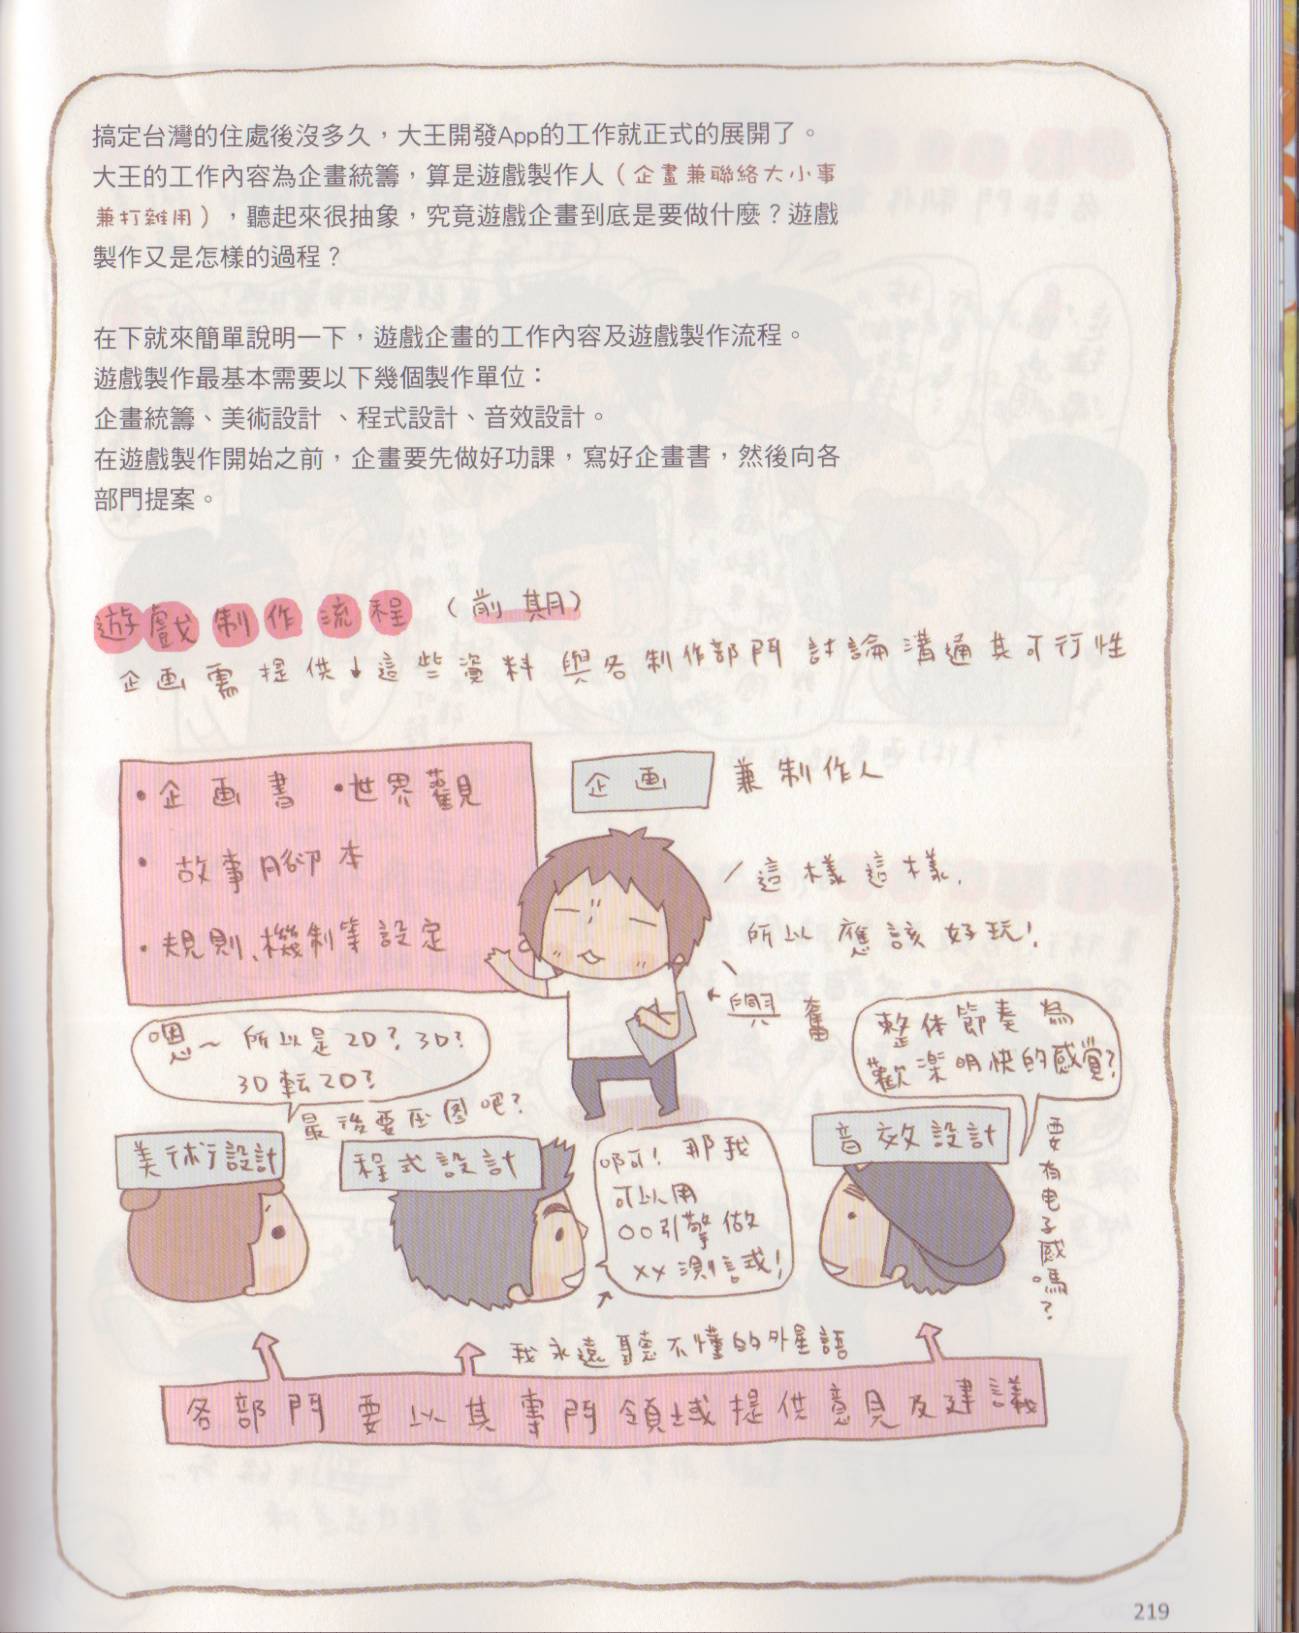 搞定台灣的住處後沒多久，大王開發App的工作就正式的展開了。
大王的工作內容為企畫統籌，算是遊戲製作人（企畫兼聯絡大小事
兼打雜用），聽起來很抽象，究竟遊戲企畫到底是要做什麼？遊戲
製作又是怎樣的過程？
在下就來簡單說明一下，遊戲企畫的工作內容及遊戲製作流程。
遊戲製作最基本需要以下幾個製作單位：
企畫統籌、美術設計 、程式設計、音效設計。
在遊戲製作開始之前，企畫要先做好功課，寫好企畫書，然後向各
部門提案。
遊戲制作流程（前期）
企画需提供↓這些資料與各制作部門討論溝通其可行性
・企画書 ・世界觀
・故事腳本
・規則、機制等設定
企画 兼制作人
這樣這樣,
所以應該好玩!
興奮
嗯～所以是2D?3D?
3D転2D?
最後要压图吧?
美術設計
程式設計
啊! 那我
可以用
○○引擎做
××測試!
我永遠聽不懂的外星語
整体節奏為
歡樂明快的感覺?
音效設計
要有电子感嗎?
各部門要以其專門領域提供意見及建議
219